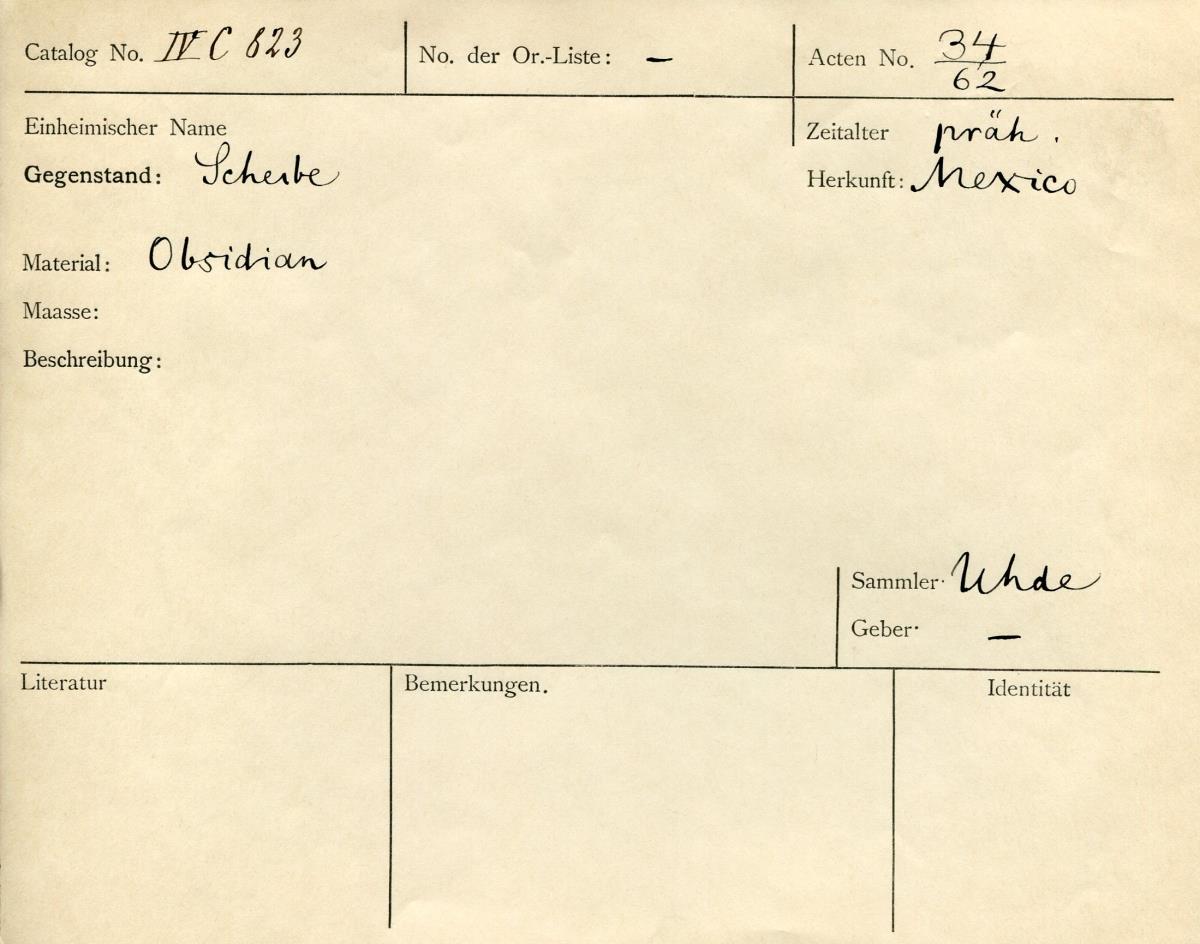 Catalog No. IV C 823
No. der Or.-Liste: —
Acten No. 34/62
Einheimischer Name
Zeitalter präh.
Gegenstand: Scheibe
Herkunft: Mexico
Material: Obsidian
Maasse:
Beschreibung:
Sammler. Uhde
Geber. —
Literatur
Bemerkungen.
Identität